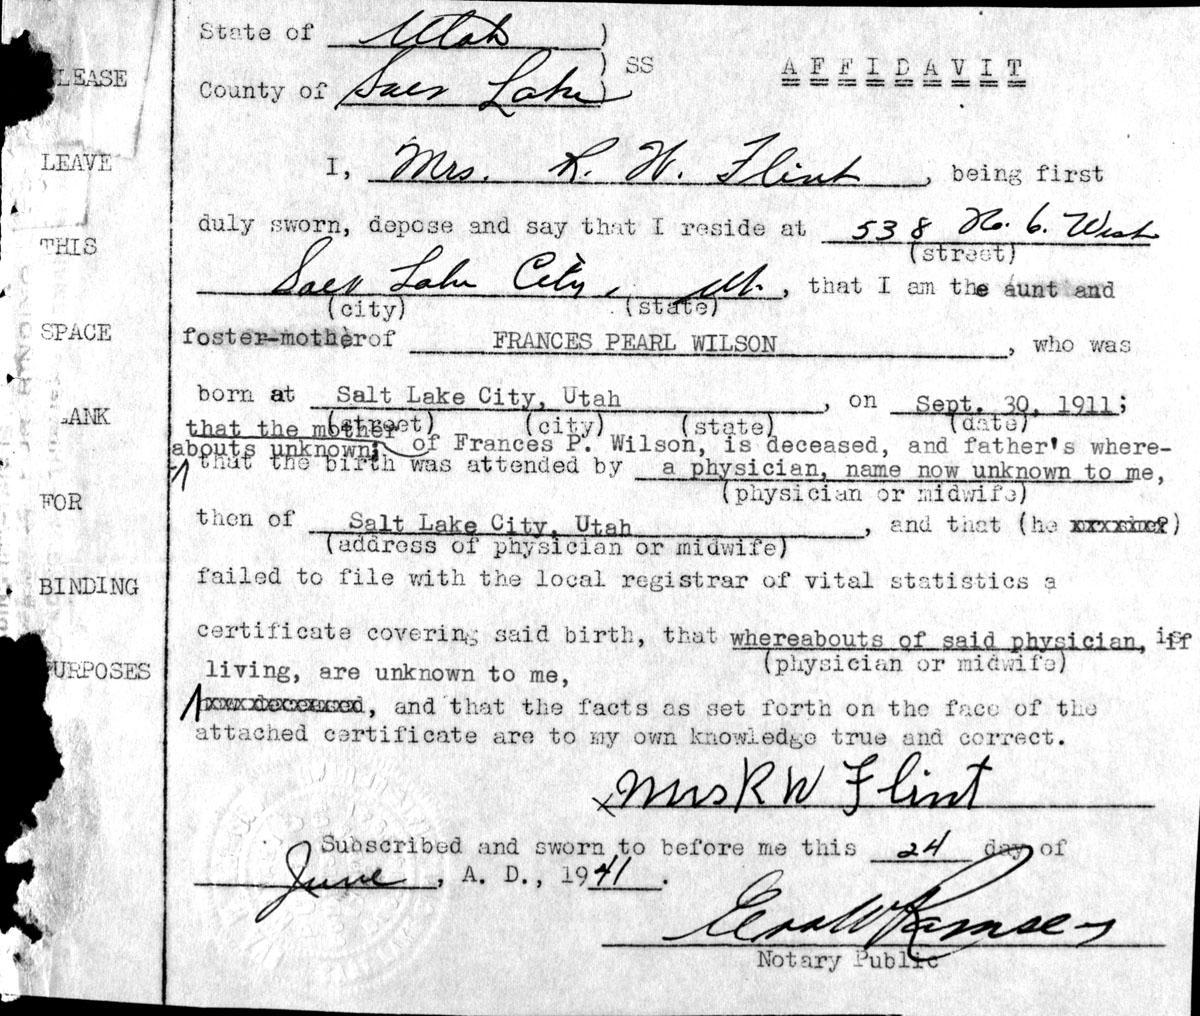 State of Utah )
) SS
County of Salt Lake )
A F F I D A V I T
PLEASE
LEAVE
THIS
SPACE
BLANK
FOR
BINDING
PURPOSES
I, Mrs. R. W. Flint, being first
duly sworn, depose and say that I reside at 538 No. 6. West
(street)
Salt Lake City, Ut., that I am the aunt and
(city) (state)
foster-mother of FRANCES PEARL WILSON, who was
born at Salt Lake City, Utah, on Sept. 30, 1911;
(street) (city) (state) (date)
that the mother of Frances P. Wilson, is deceased, and father's where-
abouts unknown;
that the birth was attended by a physician, name now unknown to me,
(physician or midwife)
then of Salt Lake City, Utah, and that (he )
(address of physician or midwife)
failed to file with the local registrar of vital statistics a
certificate covering said birth, that whereabouts of said physician, if
(physician or midwife)
living, are unknown to me,
xxx deceased, and that the facts as set forth on the face of the
attached certificate are to my own knowledge true and correct.
x Mrs R W Flint
Subscribed and sworn to before me this 24 day of
June, A. D., 1941.
Ramsey
Notary Public